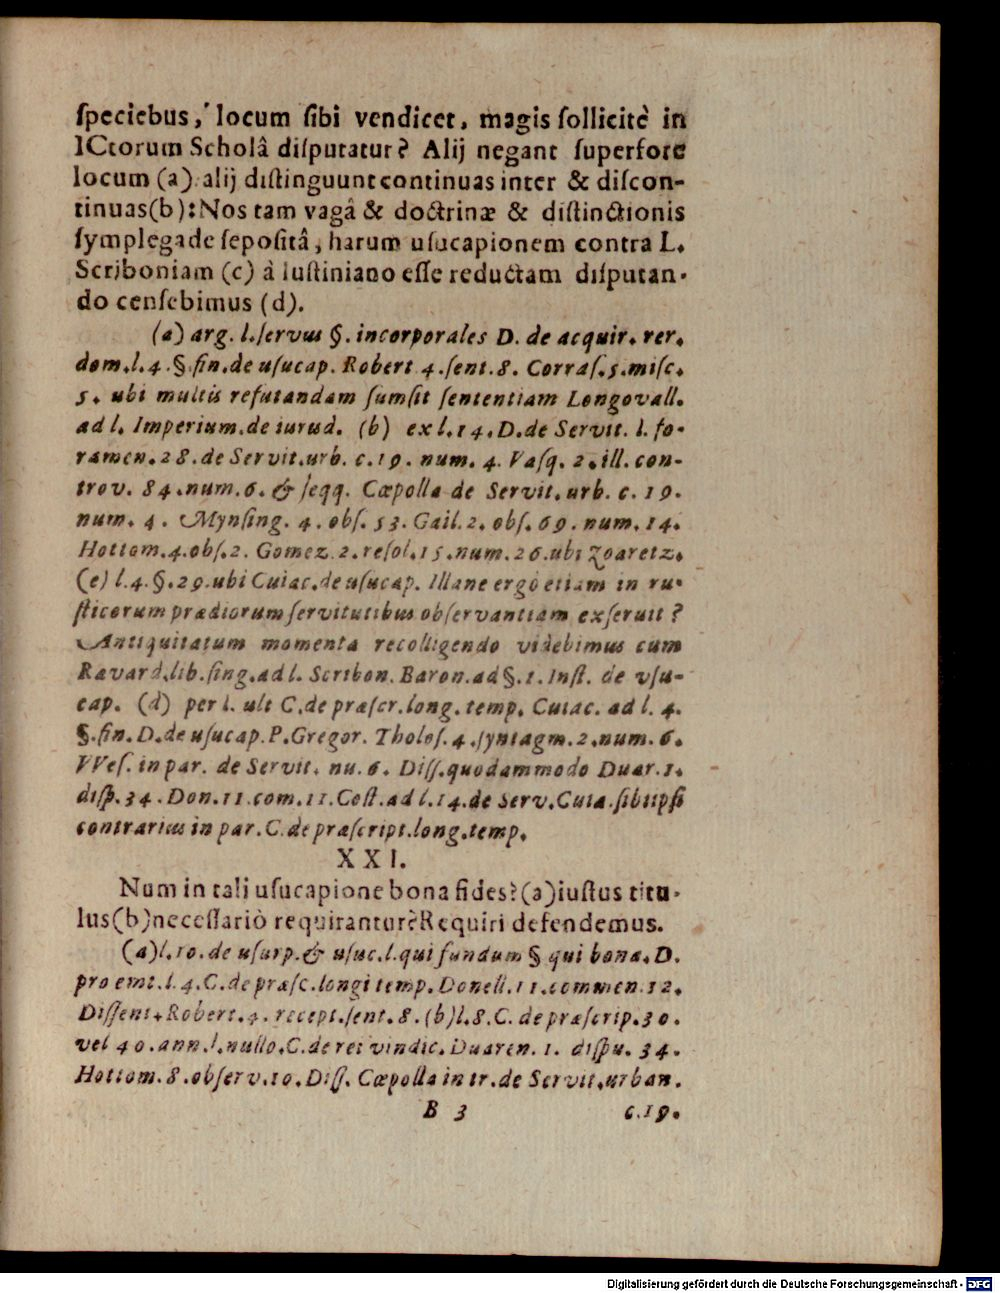 ſpeciebus, locum ſibi vendicet, magis ſollicitè in
ICtorum Scholâ diſputatur? Alij negant ſuperfore
locum (a) alij diſtinguunt continuas inter & diſcon-
tinuas(b): Nos tam vagâ & doctrinæ & diſtinctionis
ſymplegade ſepoſitâ, harum uſucapionem contra L.
Scriboniam (c) à Iuſtiniano eſſe reductam diſputan-
do cenſebimus (d).
(a) arg. l. ſervus §. incorporales D. de acquir. rer.
dom. l. 4. §. fin. de uſucap. Robert 4. ſent. 8. Corraſ. 5. miſc.
5. ubi multis refutandam ſumſit ſententiam Longovall.
ad l. Imperium. de iurud. (b) ex l. 14. D. de Servit. l. fo-
ramen. 28. de Servit. urb. c. 19. num. 4. Vaſq. 2. ill. con-
trov. 84. num. 6. & ſeqq. Cæpolla de Servit. urb. c. 19.
num. 4. Mynſing. 4. obſ. 53. Gail. 2. obſ. 69. num. 14.
Hottom. 4. obſ. 2. Gomez. 2. reſol. 15. num. 26. ubi Zoaretz.
(e) l. 4. §. 29. ubi Cuiac. de uſucap. Illane ergo etiam in ru-
ſticorum prædiorum ſervitutibus obſervantiam exſeruit?
Antiquitatum momenta recolligendo videbimus cum
Ravard. lib. ſing. ad l. Scribon. Baron. ad §. 1. Inſt. de vſu-
cap. (d) per l. ult C. de præſcr. long. temp. Cuiac. ad l. 4.
§. fin. D. de uſucap. P. Gregor. Tholoſ. 4. ſyntagm. 2. num. 6.
VVeſ. in par. de Servit. nu. 6. Diſſ. quodammodo Duar. 1.
diſp. 34. Don. 11. com. 11. Coſt. ad l. 14. de Serv. Cuia. ſibi ipſi
contrarius in par. C. de præſcript. long. temp.
XXI.
Num in tali uſucapione bona fides? (a) iuſtus titu-
lus (b) neceſſariò requirantur? Requiri defendemus.
(a) l. 10. de uſurp. & uſuc. l. qui fundum § qui bona. D.
pro emt. l. 4. C. de præſc. longi temp. Donell. 11. commen. 12.
Diſſent. Robert. 4. recept. ſent. 8. (b) l. 8. C. de præſcrip. 30.
vel 40. ann. l. nullo. C. de rei vindic. Duaren. 1. diſpu. 34.
Hottom. 8. obſerv. 10. Diſſ. Cæpolla in tr. de Servit. urban.
B 3 c. 19.
Digitalisierung gefördert durch die Deutsche Forschungsgemeinschaft - DFG